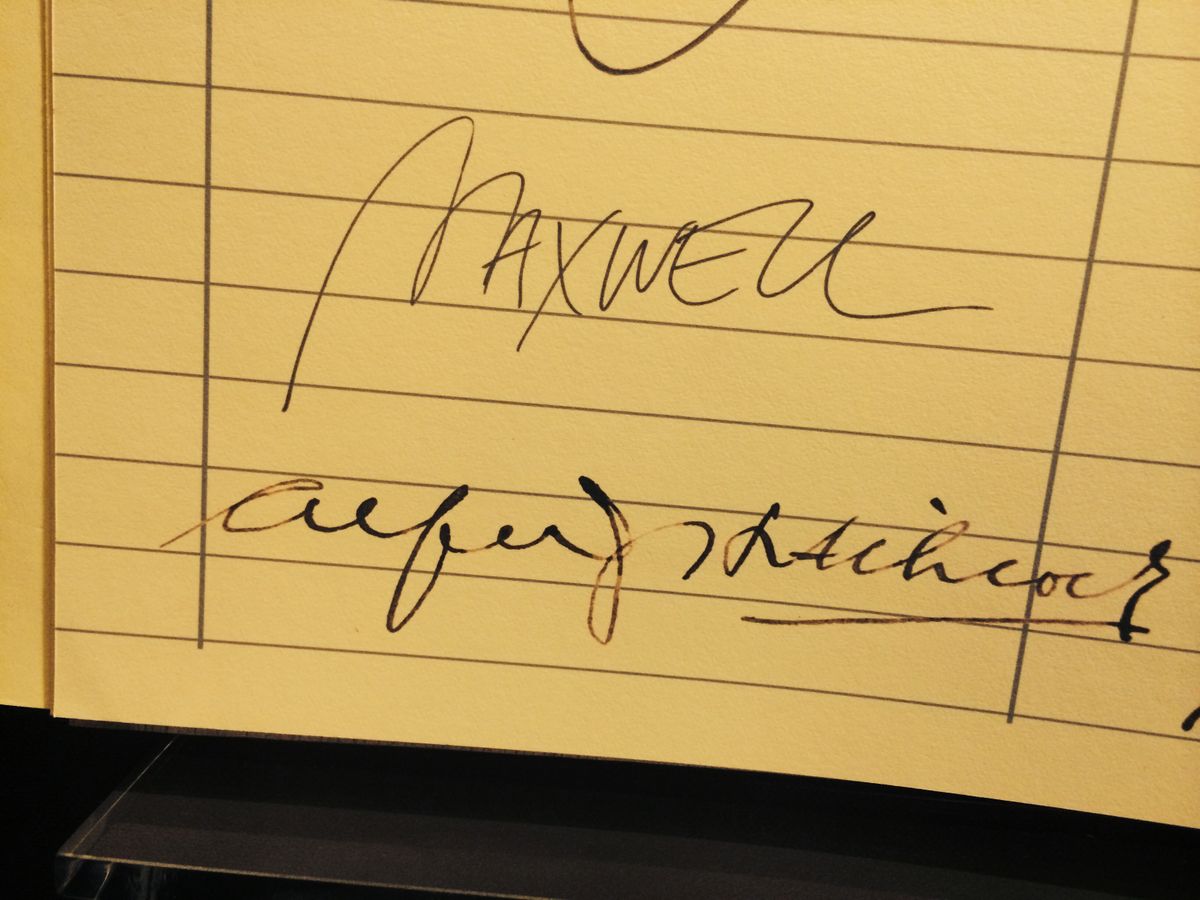 MAXWELL
Alfred Hitchcock